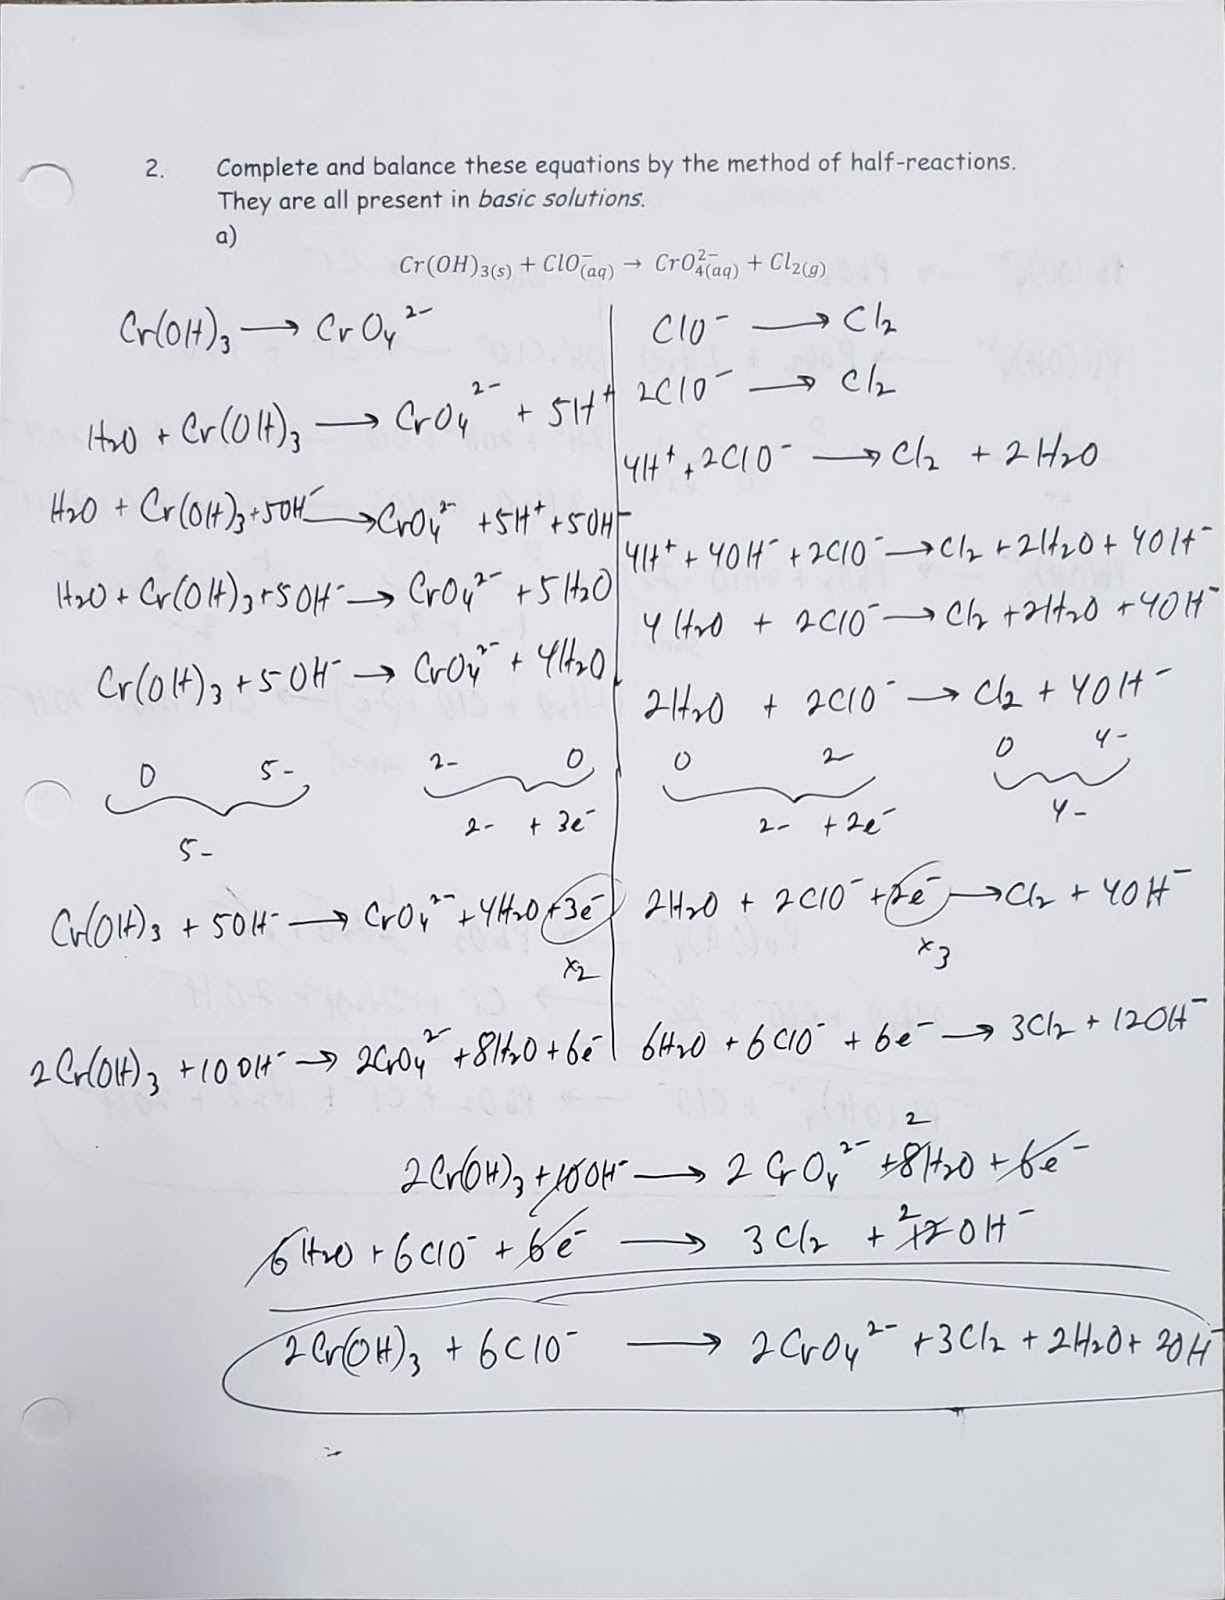 2. Complete and balance these equations by the method of half-reactions.
They are all present in basic solutions.
a)
Cr(OH)₃₍ₛ₎ + ClO⁻(aq) → CrO₄²⁻(aq) + Cl₂(g)
Cr(OH)₃ → CrO₄²⁻
H₂O + Cr(OH)₃ → CrO₄²⁻ + 5H⁺
H₂O + Cr(OH)₃ + 5OH⁻ → CrO₄²⁻ + 5H⁺ + 5OH⁻
H₂O + Cr(OH)₃ + 5OH⁻ → CrO₄²⁻ + 5H₂O
Cr(OH)₃ + 5OH⁻ → CrO₄²⁻ + 4H₂O
0 5- 2- 0
5- 2- + 3e⁻
Cr(OH)₃ + 5OH⁻ → CrO₄²⁻ + 4H₂O + 3e⁻
x2
2Cr(OH)₃ + 10OH⁻ → 2CrO₄²⁻ + 8H₂O + 6e⁻
ClO⁻ → Cl₂
2ClO⁻ → Cl₂
4H⁺ + 2ClO⁻ → Cl₂ + 2H₂O
4H⁺ + 4OH⁻ + 2ClO⁻ → Cl₂ + 2H₂O + 4OH⁻
4H₂O + 2ClO⁻ → Cl₂ + 2H₂O + 4OH⁻
2H₂O + 2ClO⁻ → Cl₂ + 4OH⁻
0 2- 0 4-
2- + 2e⁻ 4-
2H₂O + 2ClO⁻ + 2e⁻ → Cl₂ + 4OH⁻
x3
6H₂O + 6ClO⁻ + 6e⁻ → 3Cl₂ + 12OH⁻
2
2Cr(OH)₃ + 10OH⁻ → 2CrO₄²⁻ + 8H₂O + 6e⁻
2
6H₂O + 6ClO⁻ + 6e⁻ → 3Cl₂ + 12OH⁻
2Cr(OH)₃ + 6ClO⁻ → 2CrO₄²⁻ + 3Cl₂ + 2H₂O + 2OH⁻